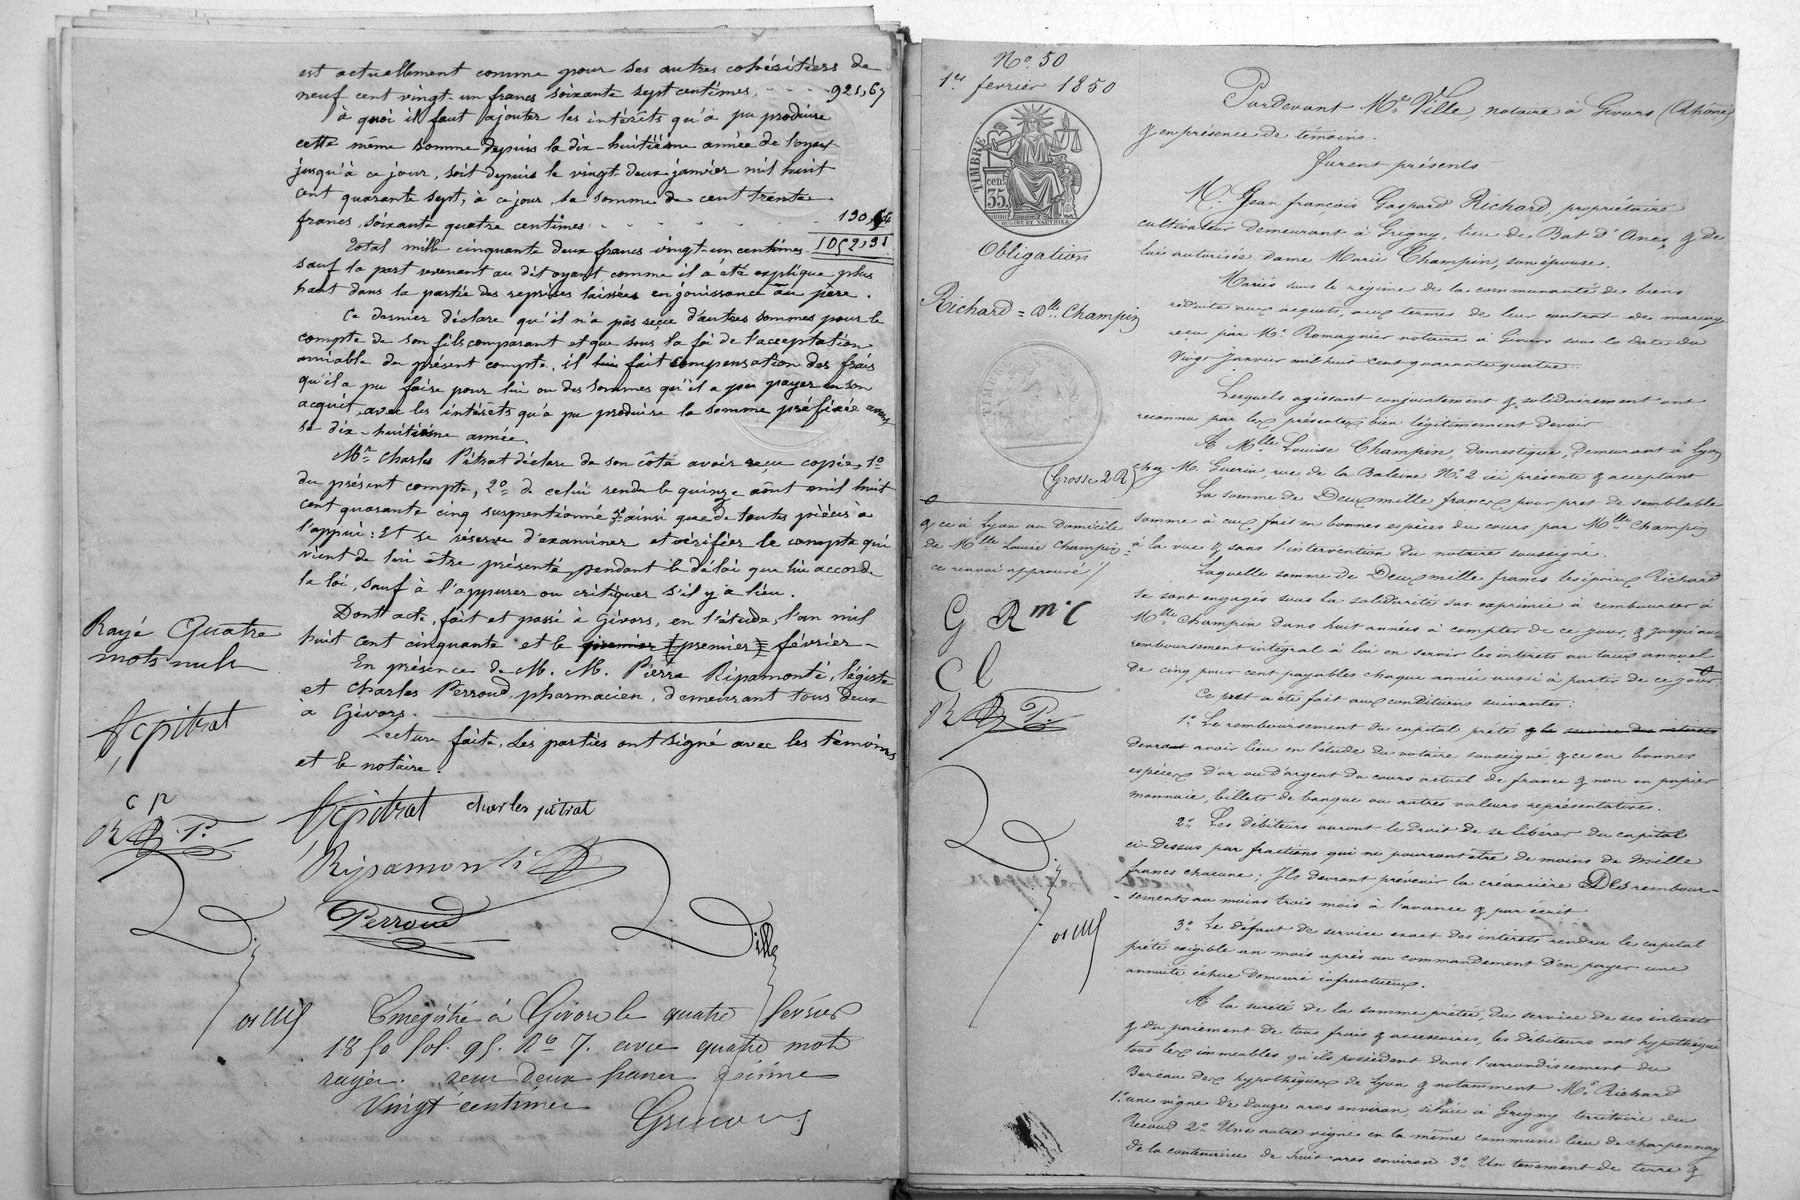 est actuellement comme pour ses autres cohéritiers de
neuf cent vingt-un francs soixante sept centimes, 921,67
à quoi il faut ajouter les intérêts qu'à pu produire
cette même somme depuis la dix-huitième année de l'oyant
jusqu'à ce jour, soit depuis le vingt-deux janvier mil huit
cent quarante sept, à ce jour, la somme de cent trente
francs, soixante quatre centimes. 130,64
Total mille cinquante deux francs vingt-un centimes 1052,31
sauf la part revenant au dit oyant comme il a été expliqué plus
haut dans la partie des reprises laissées en jouissance au père.
Ce dernier déclare qu'il n'a pas reçu d'autres sommes pour le
compte de son fils comparant et que sous la foi de l'acceptation
amiable du présent compte, il lui fait compensation des frais
qu'il a pu faire pour lui ou des sommes qu'il a pu payer en son
acquit, avec les intérêts qu'a pu produire la somme préfixée avant
sa dix-huitième année.
Mr. Charles Pitrat déclare de son côté avoir reçu copie, 1°
du présent compte, 2° de celui rendu le quinze août mil huit
cent quarante cinq susmentionné 3° ainsi que de toutes pièces a
l'appui: Et se réserve d'examiner et vérifier le compte qui
vient de lui être présenté pendant le délai que lui accorde
la loi, sauf à l'apurer ou critiquer s'il y a lieu.
Dont acte, fait et passé à Givors, en l'étude, l'an mil
huit cent cinquante et le premier premier février
En présence de M. M. Pierre Ripamonté, légiste
et Charles Perroud, pharmacien, demeurant tous deux
à Givors.
Lecture faite, les parties ont signé avec les témoins
et le notaire.
Rayé quatre
mots nuls
fcpitrat
C P
R P.
fcpitrat charles pitrat
Ripamonti
Perroud
Ville
Enregistré à Givors le quatre février
1850 fol. 95. No 7. avec quatre mots
rayés. reçu deux francs dixime
Vingt centimes
No. 50
1er fevrier 1850
TIMBRE
cen. 35
Obligation
Richard = Dlle Champin
(Grosse 2 R)
& ce à Lyon au Domicile
de Mlle Louise Champin
ce renvoi approuvé
G R m.C
C l
R P.
Pardevant Me Ville, notaire à Givors (Rhône)
& en présence de témoins.
furent présents
M. Jean françois Gaspard Richard, propriétaire
cultivateur demeurant à Grigny, lieu de Bat d'Ane, & de
lui autorisée dame Marie Champin, son épouse.
Mariés sous le régime de la communauté de biens
réduite aux acquits, aux termes de leur contrat de mariage
reçu par Me Romagnier notaire à Givors sous la date du
vingt Janvier mil huit cent quarante quatre.
Lesquels agissant conjointement & solidairement ont
reconnu par les présentes bien légitimement devoir
A Mlle Louise Champin, domestique, demeurant à Lyon
chez M. Guerin, rue de la Baleine No. 2 ici présente & acceptant
La somme de Deux mille francs pour pret de semblable
somme à eux fait en bonnes espèces du cours par Mlle Champin
à la vue & sans l'intervention du notaire soussigné.
Laquelle somme de Deux mille francs les époux Richard
se sont engagés sous la solidarité sus exprimée à rembourser à
Mlle Champin dans huit années à compter de ce jour, & jusqu'au
remboursement intégral à lui en servir les intérets au taux annuel
de cinq pour cent payables chaque année aussi à partir de ce jour
Ce pret a été fait aux conditions suivantes:
1° Le remboursement du capital prété & le service des intérets
devront avoir lieu en l'étude du notaire soussigné & ce en bonnes
espèces d'or ou d'argent du cours actuel de france & non en papier
monnaie, billets de banque ou autres valeurs représentatives.
2° Les débiteurs auront le droit de se libérer du capital
ci-dessus par fractions qui ne pourront être de moins de mille
francs chacune; Ils devront prévenir la créancière des rembour-
-sements au moins trois mois à l'avance & par écrit
3° Le défaut de service exact des intérets rendra le capital
prété exigible un mois après un commandement d'en payer une
annuité échue demeuré infructueux.
A la sureté de la somme prétée, du service de ses intérets
& du paiement de tous frais & accessoires, les débiteurs ont hypothéqué
tous les immeubles qu'ils possèdent dans l'arrondissement du
Bureau des hypothèques de Lyon & notamment Mr Richard
1° une vigne de douze ares environ, située à Grigny territoire du
Recoud 2° Une autre vigne en la même commune lieu de charpennay
de la contenance de huit ares environ 3° Un tenement de terre &